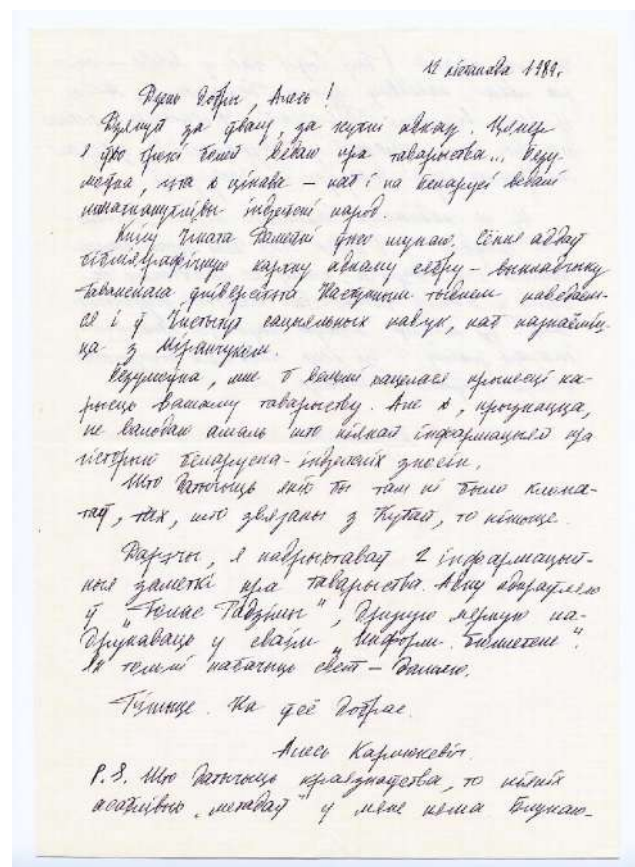 12 лістапада 1989г.
Дзень добры, Алесь!
Дзякуй за ўвагу, за хуткі адказ. Цяпер
я ўжо трохі болей ведаю пра таварыства... Безу-
моўна, гэта ж цікава – каб і на Беларусі ведалі
пра індзейскі народ.
Кнігу Ігната Дамейкі ўжо шукаю. Сёння аддаў
бібліяграфічную картку аднаму сябру – выкладчыку
Гаванскага універсітэта. Наступным тыднем наведаем-
ся і ў Інстытут сацыяльных навук, каб пазнаёміц-
ца з
Безумоўна, мне б вельмі хацелася прынесці ка-
рысць вашаму таварыству. Але ж, прызнацца,
не валодаю амаль што ніякай інфармацыяй пра
гісторыю беларуска-індзейскіх зносін.
Што датычыць якіх бы там ні было клопа-
таў, тых, што звязаны з Кубай, то пішыце.
Дарэчы, я падрыхтаваў 2 інфармацый-
ныя заметкі пра таварыства. Адну адпраўляю
ў "Голас Радзімы", другую мяркую на-
друкаваць у сваім "Информ. бюллетене".
Як толькі пабачыць свет – дашлю.
Пішыце. На ўсё добрае.
Алесь Карлюкевіч.
P.S. Што датычыць краязнаўства, то ніякіх
асаблівых "метадаў" у мяне няма. Блукаю-